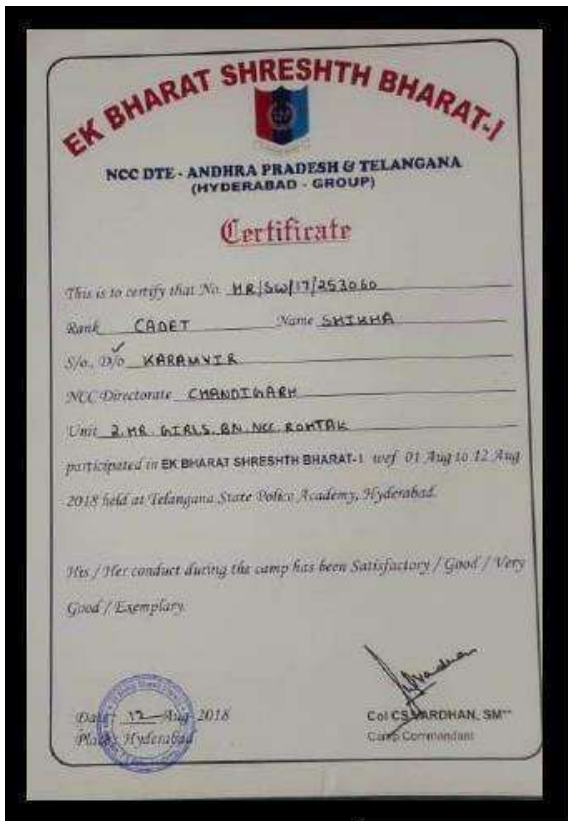 EK BHARAT SHRESHTH BHARAT-I
NCC DTE - ANDHRA PRADESH & TELANGANA
(HYDERABAD - GROUP)
Certificate
This is to certify that No. HR/SW/17/253060
Rank CADET Name SHIKHA
S/o., D/o KARAMVIR
NCC Directorate CHANDIGARH
Unit 2.HR.GIRLS.BN.NCC.ROHTAK
participated in EK BHARAT SHRESHTH BHARAT-I wef 01 Aug to 12 Aug
2018 held at Telangana State Police Academy, Hyderabad.
His / Her conduct during the camp has been Satisfactory / Good / Very
Good / Exemplary.
Date: 12 Aug 2018
Place: Hyderabad
Col CS VARDHAN, SM**
Camp Commandant